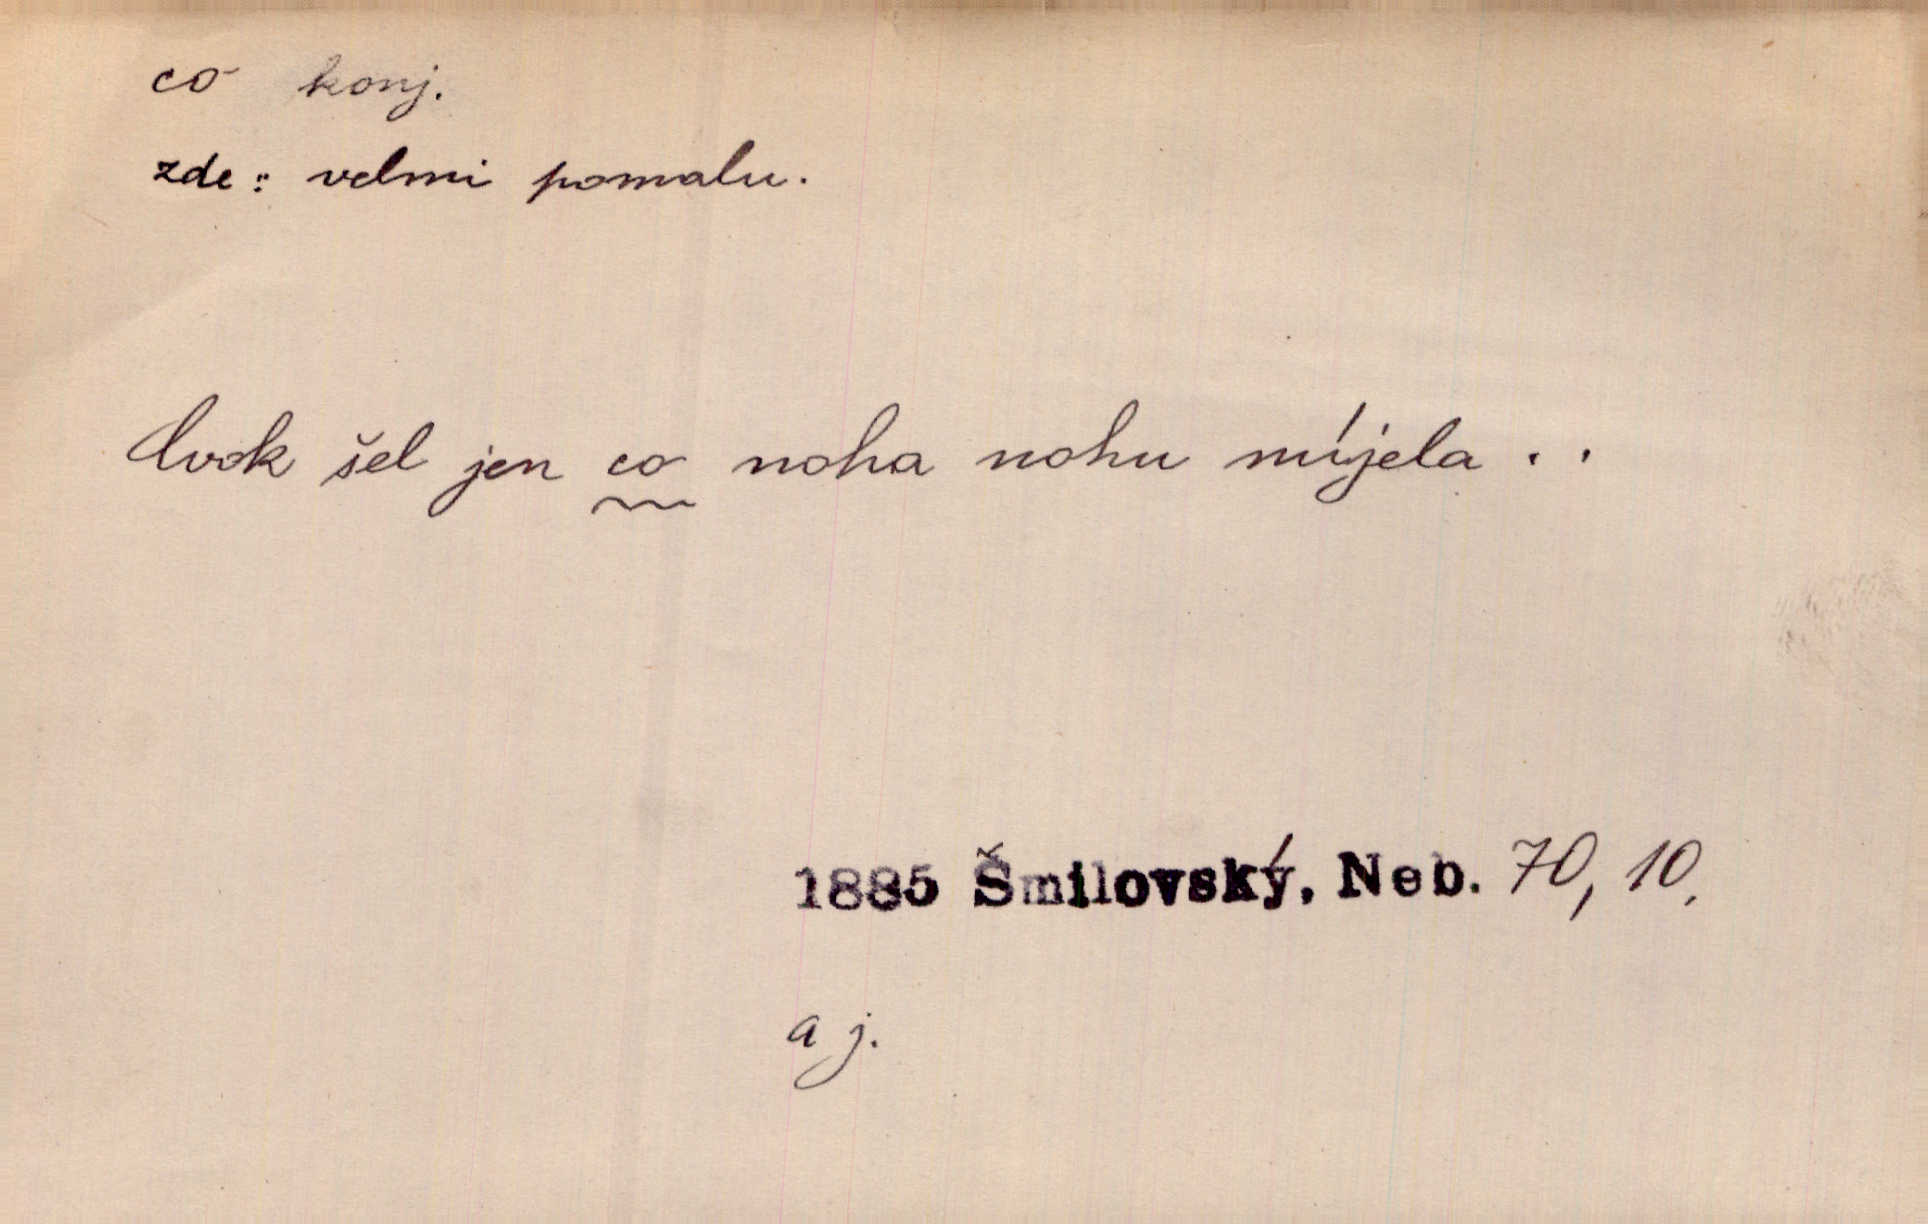 co konj.
zde: velmi pomalu.
Cvok šel jen co noha nohu míjela . .
1885 Šmilovský, Neb. 70, 10.
a j.